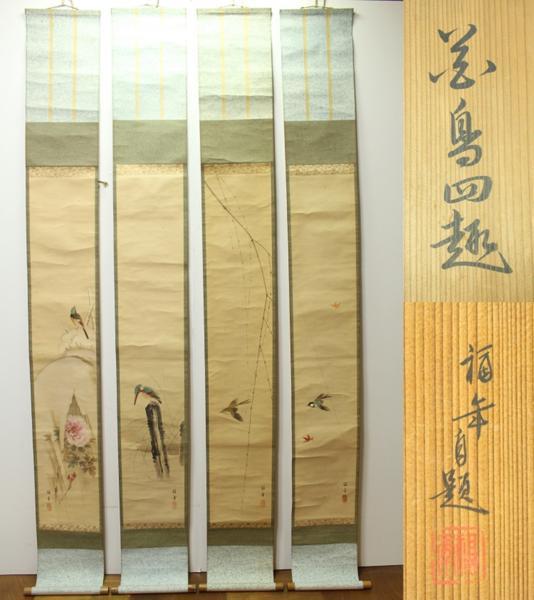 花鳥四趣
福年自題